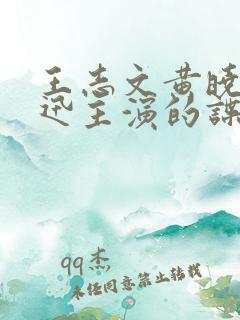 王志文黄晓
迅主演的谍
qq杰
未经同意禁止转载